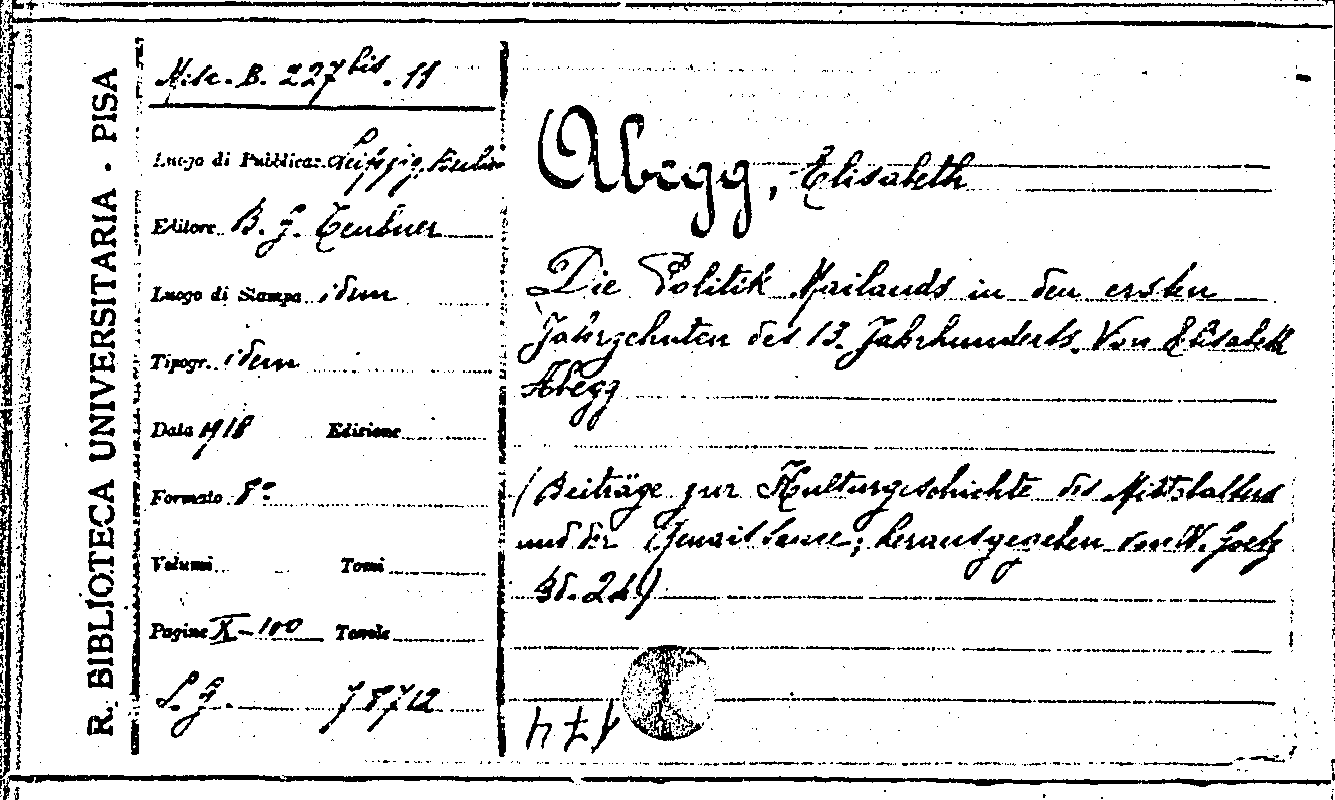 R. BIBLIOTECA UNIVERSITARIA . PISA
Misc. B. 227 bis. 11
Luogo di Pubblicaz. Leipzig, Berlin
Editore B. G. Teubner
Luogo di Stampa idem
Tipogr. idem
Data 1918 Edizione
Formato 8°
Volumi Tomi
Pagine X-100 Tavole
S. G. 78712
Abegg, Elisabeth
Die Politik Mailands in den ersten
Jahrzehnten des 13. Jahrhunderts. Von Elisabeth
Abegg
(Beiträge zur Kulturgeschichte des Mittelalters
und der Renaissance; herausgegeben von W. Goetz
Bd. 24)